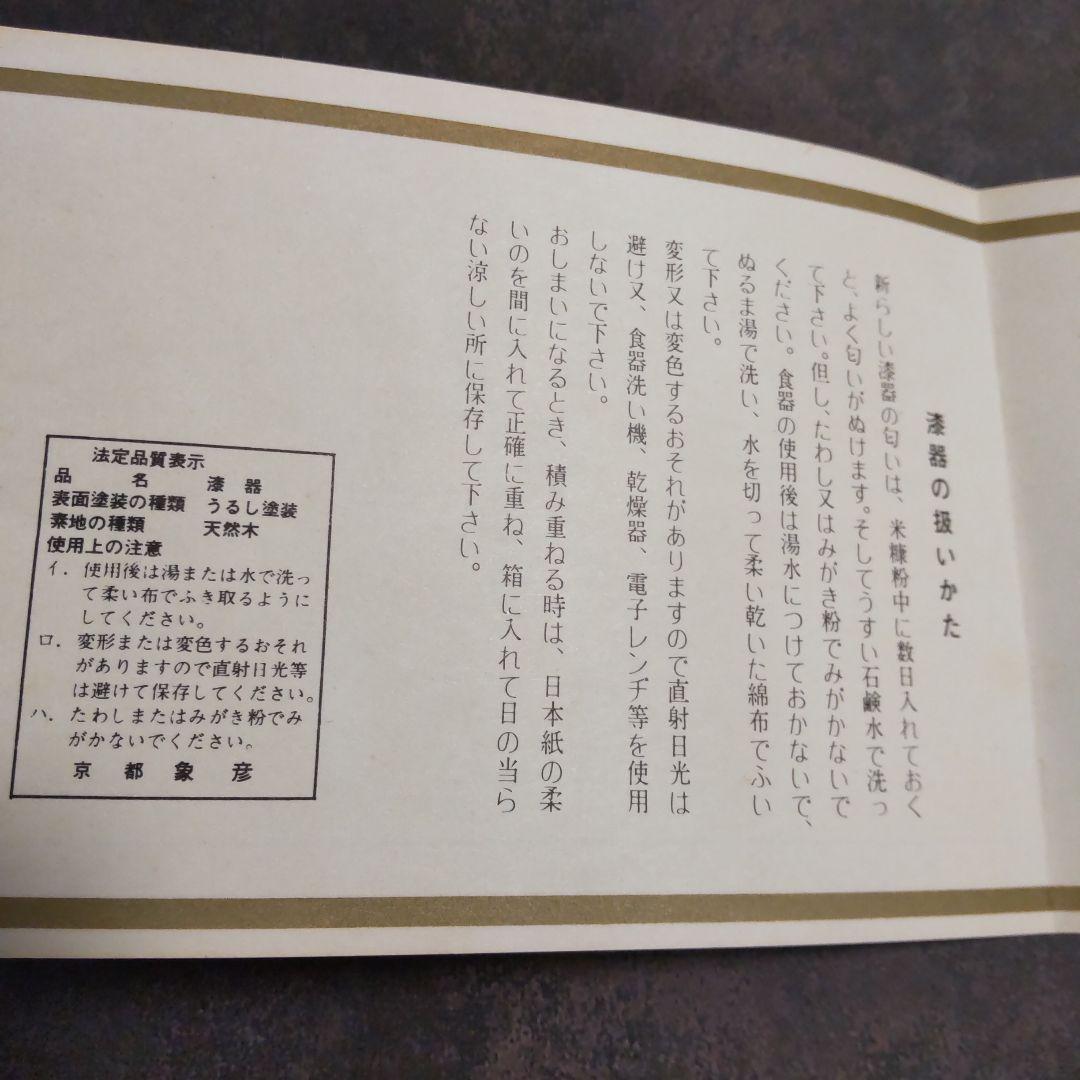 漆器の扱いかた
新らしい漆器の匂いは、米糠粉中に数日入れておく
と、よく匂いがぬけます。そしてうすい石鹸水で洗っ
て下さい。但し、たわし又はみがき粉でみがかないで
ください。食器の使用後は湯水につけておかないで、
ぬるま湯で洗い、水を切って柔い乾いた綿布でふい
て下さい。
変形又は変色するおそれがありますので直射日光は
避け又、食器洗い機、乾燥器、電子レンヂ等を使用
しないで下さい。
おしまいになるとき、積み重ねる時は、日本紙の柔
いのを間に入れて正確に重ね、箱に入れて日の当ら
ない涼しい所に保存して下さい。
法定品質表示
品名 漆器
表面塗装の種類 うるし塗装
素地の種類 天然木
使用上の注意
イ. 使用後は湯または水で洗っ
て柔い布でふき取るように
してください。
ロ. 変形または変色するおそれ
がありますので直射日光等
は避けて保存してください。
ハ. たわしまたはみがき粉でみ
がかないでください。
京都象彦